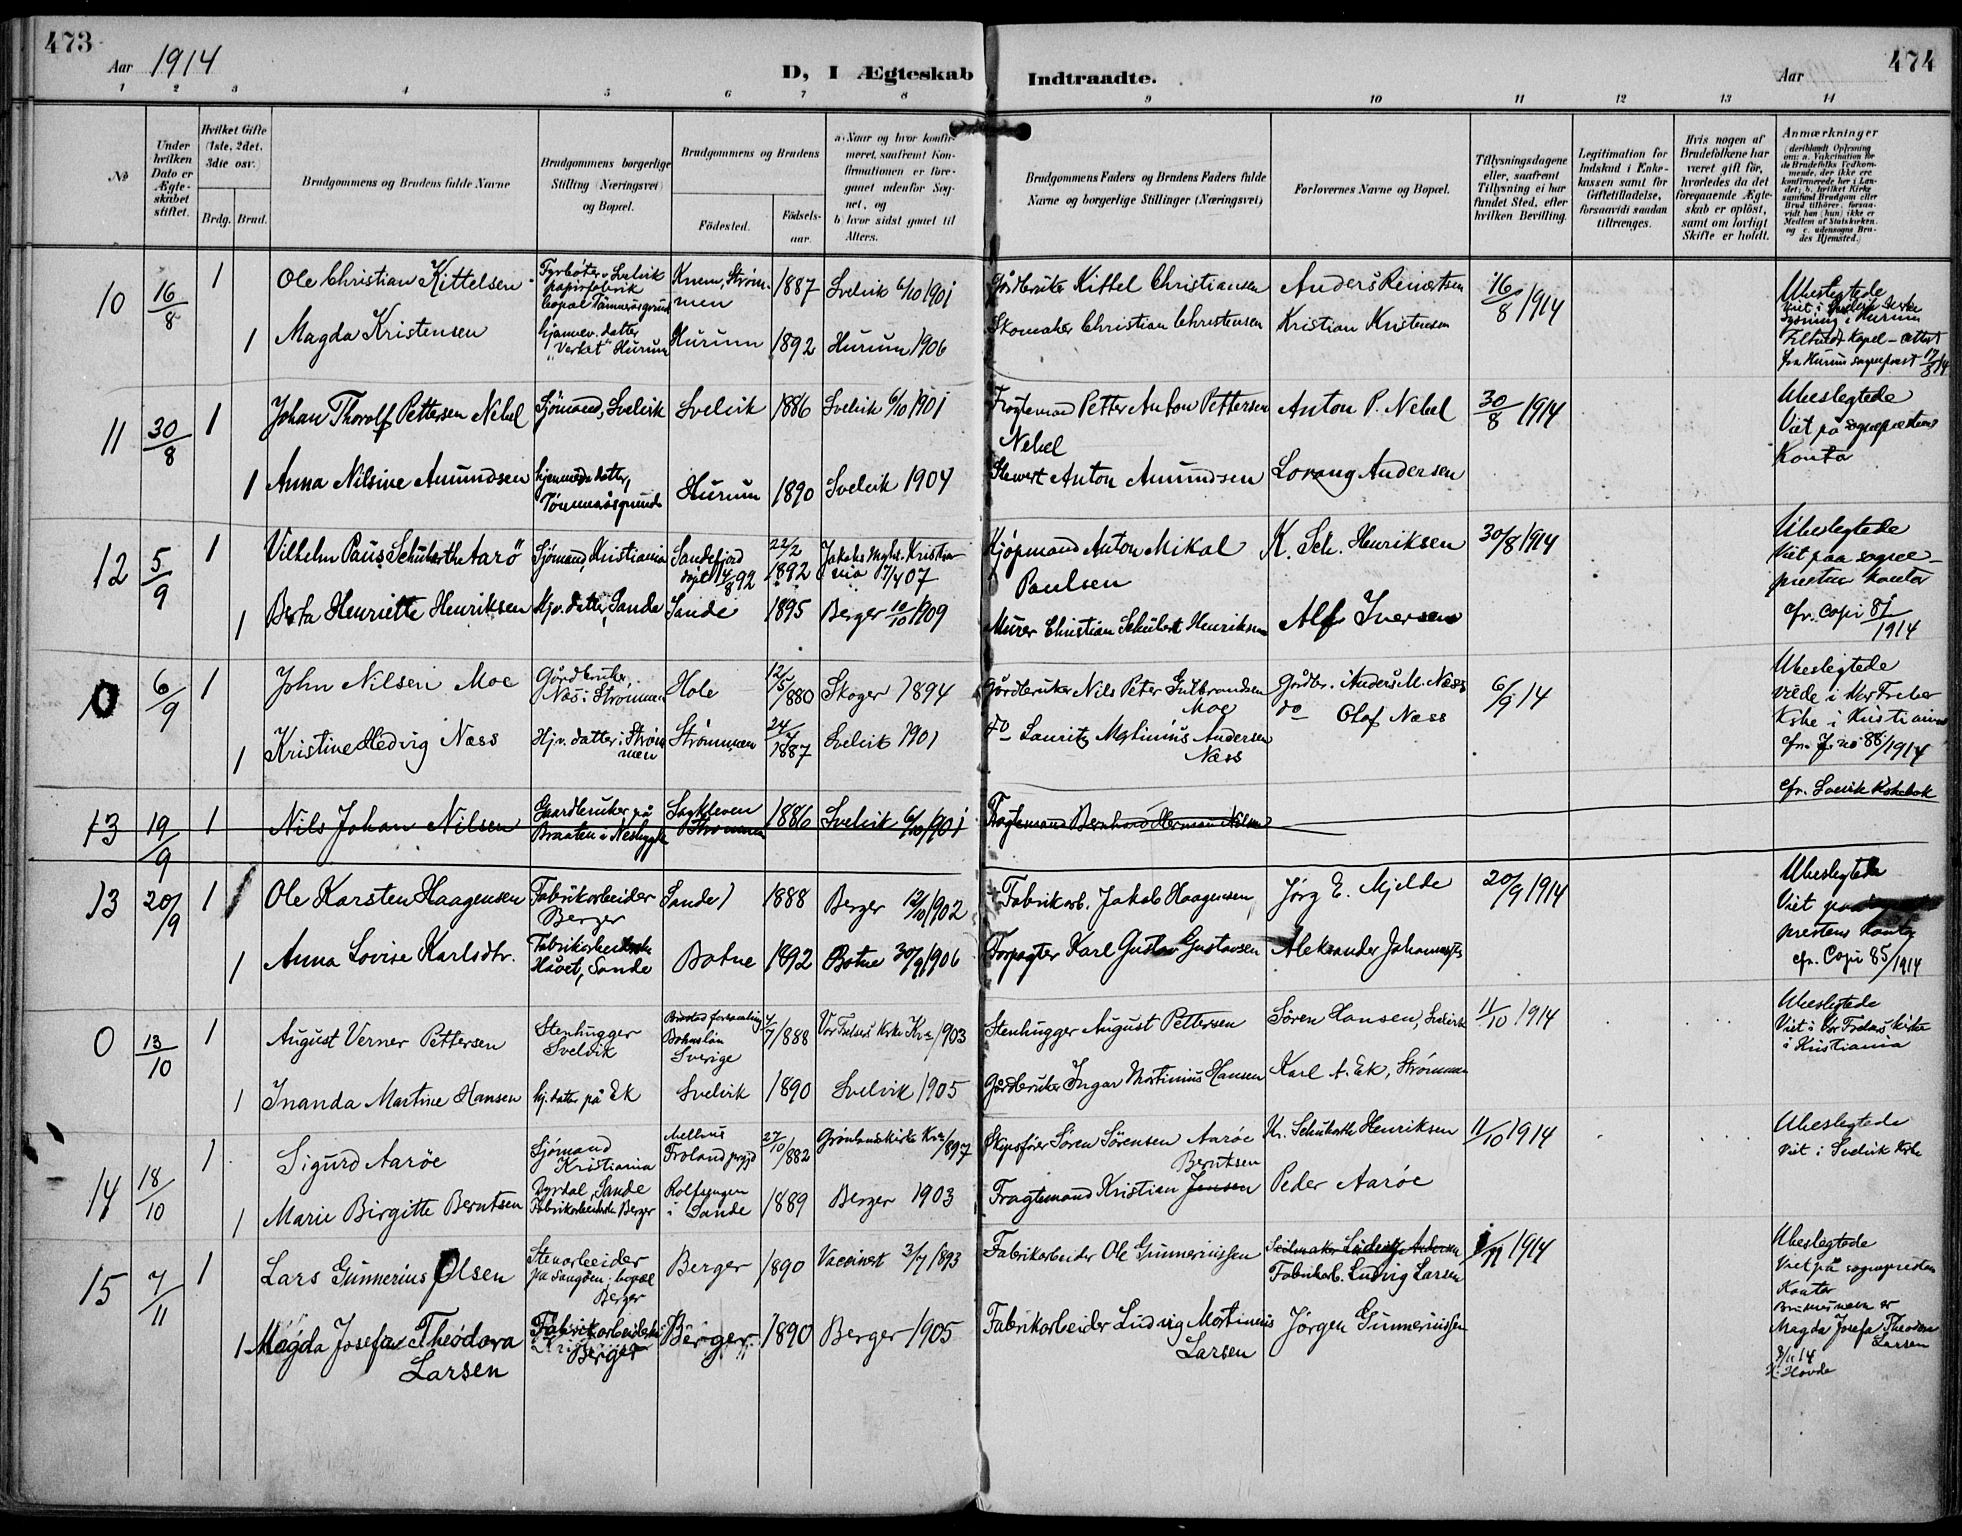 473
Aar 1914
D, I Ægteskab Indtraadte.
Aar
474
1 2 3 4 5 6 7 8 9 10 11 12 13 14
No
Under hvilken Dato er Ægteskabet stiftet.
Hvilket Gifte (1ste, 2det, 3die osv.)
Brdg. Brud.
Brudgommens og Brudens fulde Navne
Brudgommens borgerlige Stilling (Næringsvei) og Bopæl.
Brudgommens og Brudens
Fødested.
Fødselsaar.
a) Naar og hvor konfirmeret, saafremt Konfirmationen er foregaaet udenfor Sognet, og
b) hvor sidst gaaet til Alters.
Brudgommens Faders og Brudens Faders fulde Navne og borgerlige Stillinger (Næringsvei)
Forlovernes Navne og Bopæl.
Tillysningsdagene eller, saafremt Tillysning ei har fundet Sted, efter hvilken Bevilling.
Legitimation for Indskud i Enkekassen samt for Giftetilladelse, forsaavidt saadan tiltrænges.
Hvis nogen af Brudefolkene har været gift før, hvorledes da det foregaaende Ægteskab er opløst, samt om lovligt Skifte er holdt.
Anmærkninger
(deriblandt Oplysning om: a. Vakcination for de Brudefolks Vedkommende, der ikke ere konfirmerede her i Landet; b. hvilket Kirkesamfund Brudgom eller Brud tilhører, forsaavidt han (hun) ikke er Medlem af Statskirken, og c. udensogns Brudes Hjemsted.)
10 16/8 1 Ole Christian Kittelsen Fyrbøter v. Svelvik papirfabrik bopæl Tømmeråsgrund Knem, Strømmen 1887 Svelvik 6/10 1901 Gårdbruker Kittel Christiansen Anders Reinertsen 16/8 1914 Ubeslegtede
1 Magda Kristensen hjemmev. datter "Verket" Hurum Hurum 1892 Hurum 1906 Skomaker Christian Christensen Kristian Kristensen
Filtvedt Kapel - attest fra Hurum sogneprest 17/8 14
11 30/8 1 Johan Thorolf Pettersen Nebel Sjömand, Svelvik Svelvik 1886 Svelvik 6/10 1901 Fragtemand Petter Anton Pettersen Nebel Anton P. Nebel 30/8 1914 Ubeslegtede
Viet på sogneprestens Kontor
1 Anna Nilsine Amundsen hjemmev. datter, Tömmeråsgrund Hurum 1890 Svelvik 1904 Stewert Anton Amundsen Lorang Andersen
12 5/9 1 Vilhelm Paus Schuberthe Aarö Sjömand, Kristiania Sandefjord døpt 14/8 92 22/2 1892 Jakobs Mgh. Kristiania 7/4 07 Kjøpmand Anton Mikal Paulsen K. Sch. Henriksen 30/8 1914 Ubeslegtede
Viet paa sogneprestens kontor
cfr. Copi 81/1914
1 Berta Henriette Henriksen Hjv. datter, Sande Sande 1895 Berger 10/10 1909 Murer Christian Schubert Henriksen Alf Iversen
0 6/9 1 John Nilsen Moe Gårdbruker, Næs i Strømmen Hole 12/5 1880 Skoger 1894 Gårdbruker Nils Peter Gulbrandsen Moe Gårdbr. Anders M. Næss 6/9 14 Ubeslegtede
Viede i Vor Frelser Kirke i Kristiania
cfr. J. no 88/1914
1 Kristine Hedvig Næss Hjv. datter i Strømmen Strømmen 24/7 1887 Svelvik 1901 do Lauritz Melinius Andersen Næss do Olaf Næss
cfr. Svelvik Kirkebok
13 19/9 1 Nils Johan Nilsen Gaardbruker på Braaten i Nesbygda Sagkleven Strømmen 1886 Svelvik 6/10 1901 Fragtemand Bernhard Herman Nilsen
13 20/9 1 Ole Karsten Haagensen Fabrikarbeider Berger Sande 1888 Berger 12/10 1902 Fabrikarb. Jakob Haagensen Jörg E. Mjelde 20/9 1914 Ubeslegtede
Viet prestens Kontor
cfr. Copi 85/1914
1 Anna Lovise Karlsdtr. Fabrikarbeiderske Haavet, Sande Botne 1892 Botne 30/9 1906 Forpagter Karl Gustav Gustavsen Aleksander Johannessen
0 13/10 1 August Verner Pettersen Stenhugger Svelvik Bohuslän Sverige 4/7 1888 Vor Frelsers Kirke Kr.a 1903 Stenhugger August Pettersen Sören Hansen, Svelvik 11/10 1914 Ubeslegtede
Viet i Vor Frelsers Kirke i Kristiania
1 Inanda Martine Hansen hj. datter på Ek Svelvik 1890 Svelvik 1905 Gårdbruker Ingar Martinius Hansen Karl A. Ek, Strømmen
14 18/10 1 Sigurd Aarøe Sjömand Kristiania Froland prgjd 27/10 1882 Grønlandskirke Kr.a 1897 Skipsfører Sören Sörensen Aarøe Kr. Schuberth Henriksen 11/10 1914 Ubeslegtede
Viet i Svelvik Kirke
1 Marie Birgitte Berntsen Dyrdal, Sande Fabrikarbeiderske Berger Rolfsengen i Sande 1889 Berger 1903 Fragtemand Kristian Jensen Berntsen Peder Aarøe
15 7/11 1 Lars Gunnerius Olsen Stenarbeider på Sangöen; bopæl Berger Berger 1890 Vaccinert 3/7 1893 Fabrikarbeider Ole Gunneriussen Seilmaker Ludvig Andersen Fabrikarb. Ludvig Larsen 1/11 1914 Ubeslegtede
Viet på sogneprestens Kontor
Brudens navn er Magda Josefa Theodora Larsen
9/11 14
H. Hovde
1 Magda Josefa Theódora Larsen Fabrikarbeiderske Berger Berger 1890 Berger 1905 Fabrikarbeider Ludvig Martinius Larsen Jörgen Gunneriussen